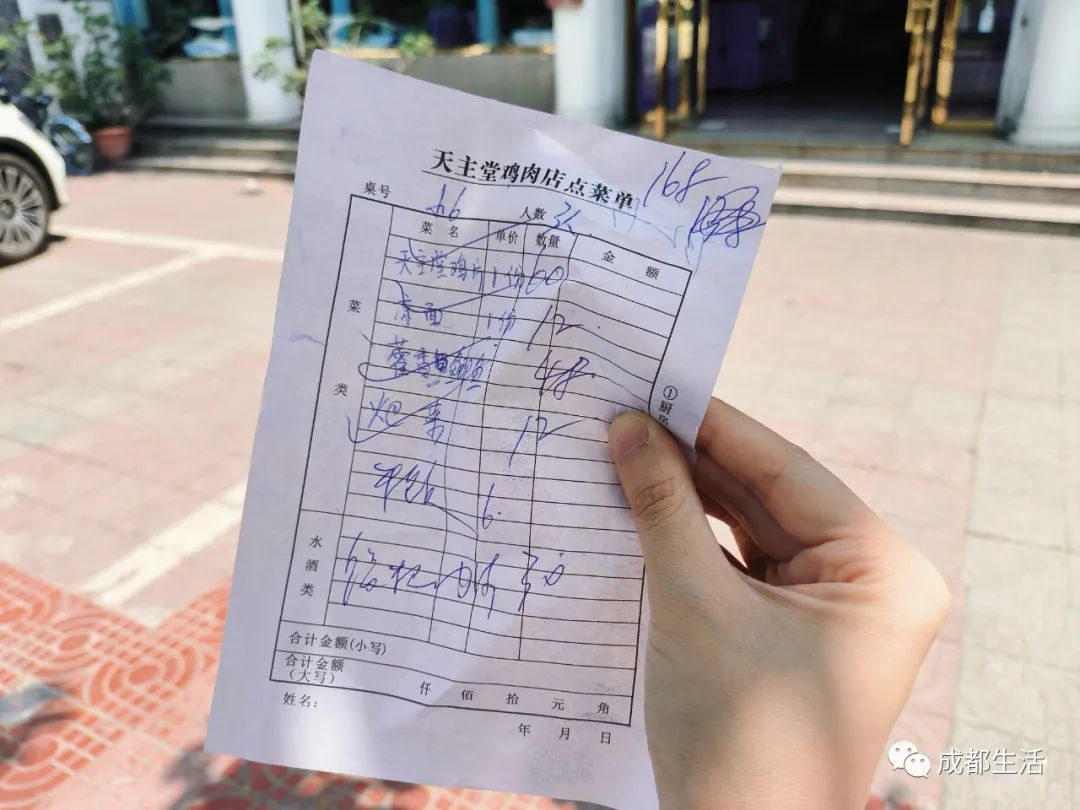 天主堂鸡肉店点菜单 168
桌号 66 人数
菜名 单价 数量 金额
天主堂鸡片 1份 60
凉面 1份 12
48
泡菜 12
6
30
菜类
水酒类
①厨房
合计金额(小写)
合计金额(大写) 仟 佰 拾 元 角
姓名： 年 月 日
成都生活